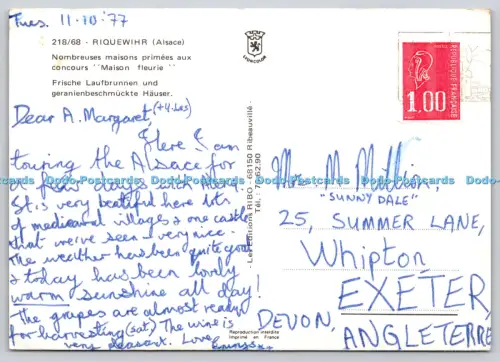 Tues. 11·10·'77
218/68 - RIQUEWIHR (Alsace)
Nombreuses maisons primées aux
concours "Maison fleurie"
Frische Laufbrunnen und
geranienbeschmückte Häuser.
Dear A. Margaret,
Here I am
touring the Alsace for
a few days with
It is very beautiful here lots
of mediaeval villages & one castle
that we've seen - very nice.
The weather has been quite good
& today has been lovely
warm sunshine all day!
The grapes are almost ready
for harvesting (Sat.) The wine is
very pleasant. Love
Les Editions "RIBO" - 68150 Ribeauvillé -
Reproduction interdite
Imprimé en France
REPUBLIQUE FRANÇAISE
1,00
Mrs. M.
"SUNNYDALE"
25, SUMMER LANE,
Whipton
EXETER,
DEVON,
ANGLETERRE
Dodo-Postcards